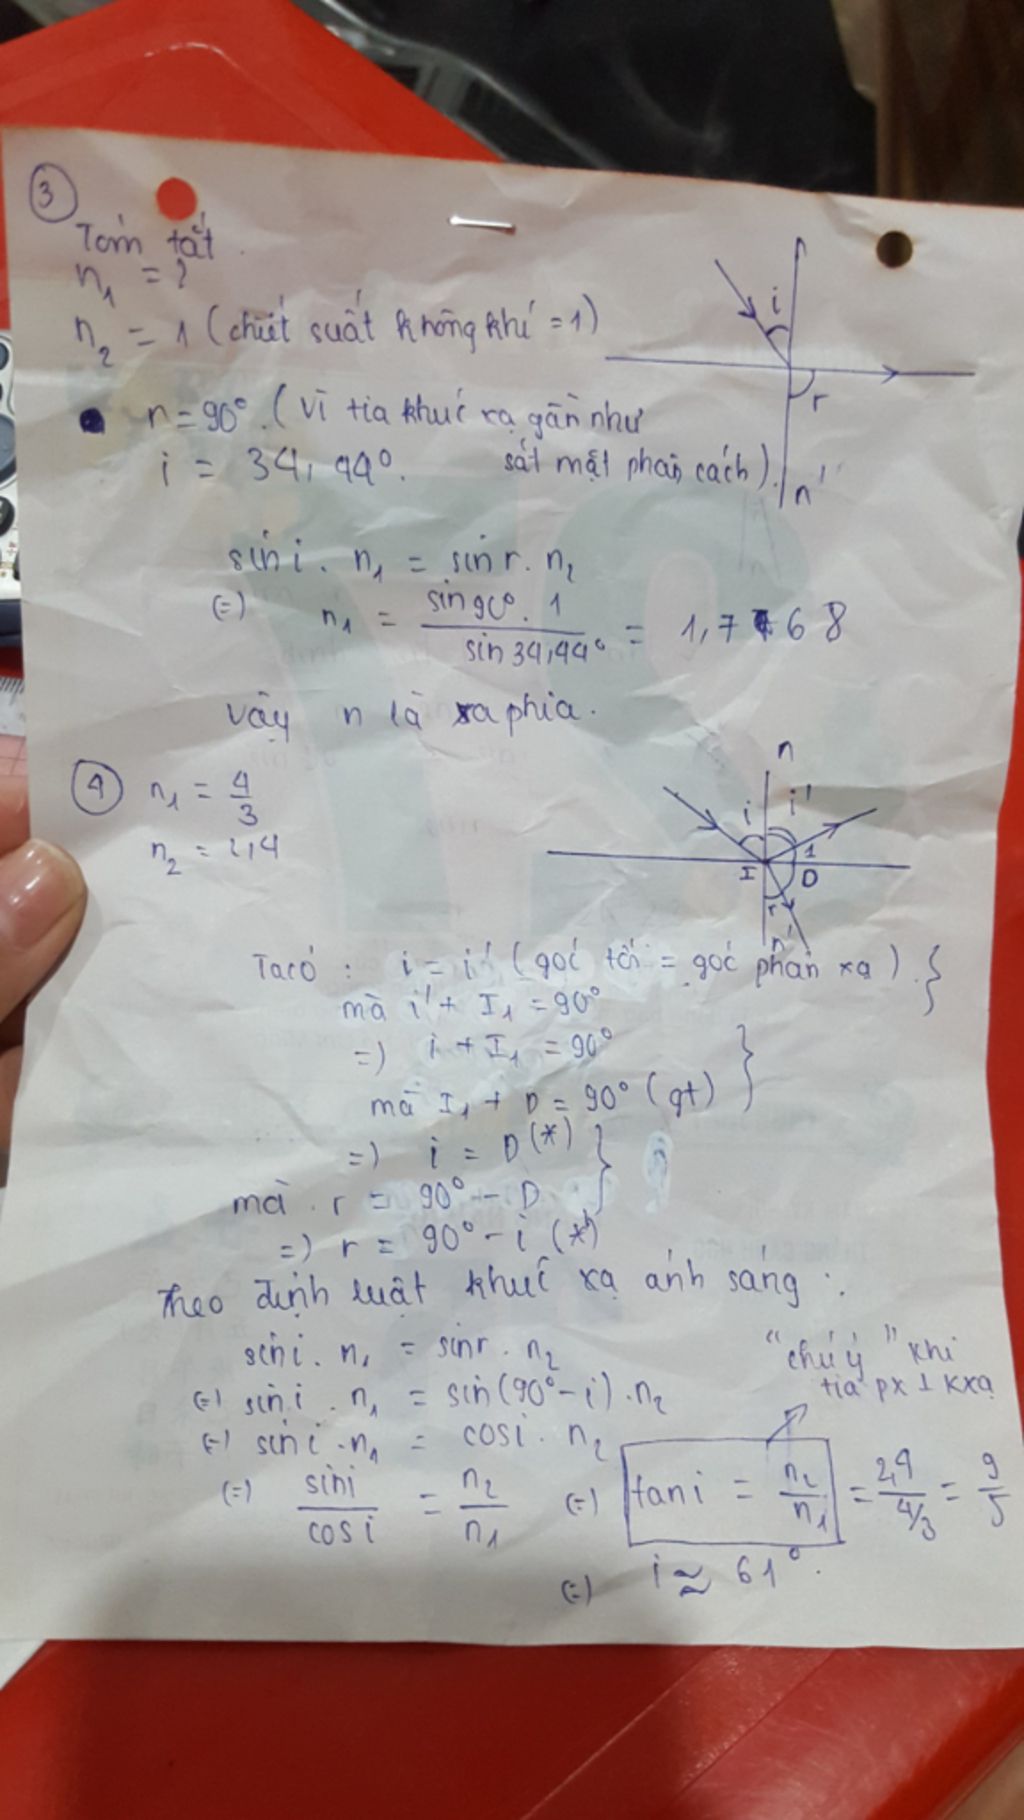 3
Tóm tắt.
n₁ = ?
n₂ = 1 (chiết suất không khí = 1)
i
r
n'
r = 90°. (Vì tia khúc xạ gần như
sát mặt phân cách).
i = 34,44°.
sin i . n₁ = sin r . n₂
(=) n₁ = sin90° . 1 / sin 34,44° = 1,768
vậy n là xaphia.
4 n₁ = 4/3
n₂ = 2,4
n
i i'
1
I D
r
n'
Ta có : i = i' (góc tới = góc phản xạ). }
mà i' + I₁ = 90°
=) i + I₁ = 90°
mà I₁ + D = 90° (gt) }
=) i = D (*) }
mà r = 90° - D
=) r = 90° - i (*)
Theo định luật khúc xạ ánh sáng :
sin i . n₁ = sin r . n₂
(=) sin i . n₁ = sin(90° - i) . n₂
(=) sin i . n₁ = cos i . n₂
"chú ý" khi
tia px ⊥ kxạ
(=) sin i / cos i = n₂ / n₁ (=) tan i = n₂ / n₁ = 2,4 / 4/3 = 9/5
(=) i ≈ 61°.